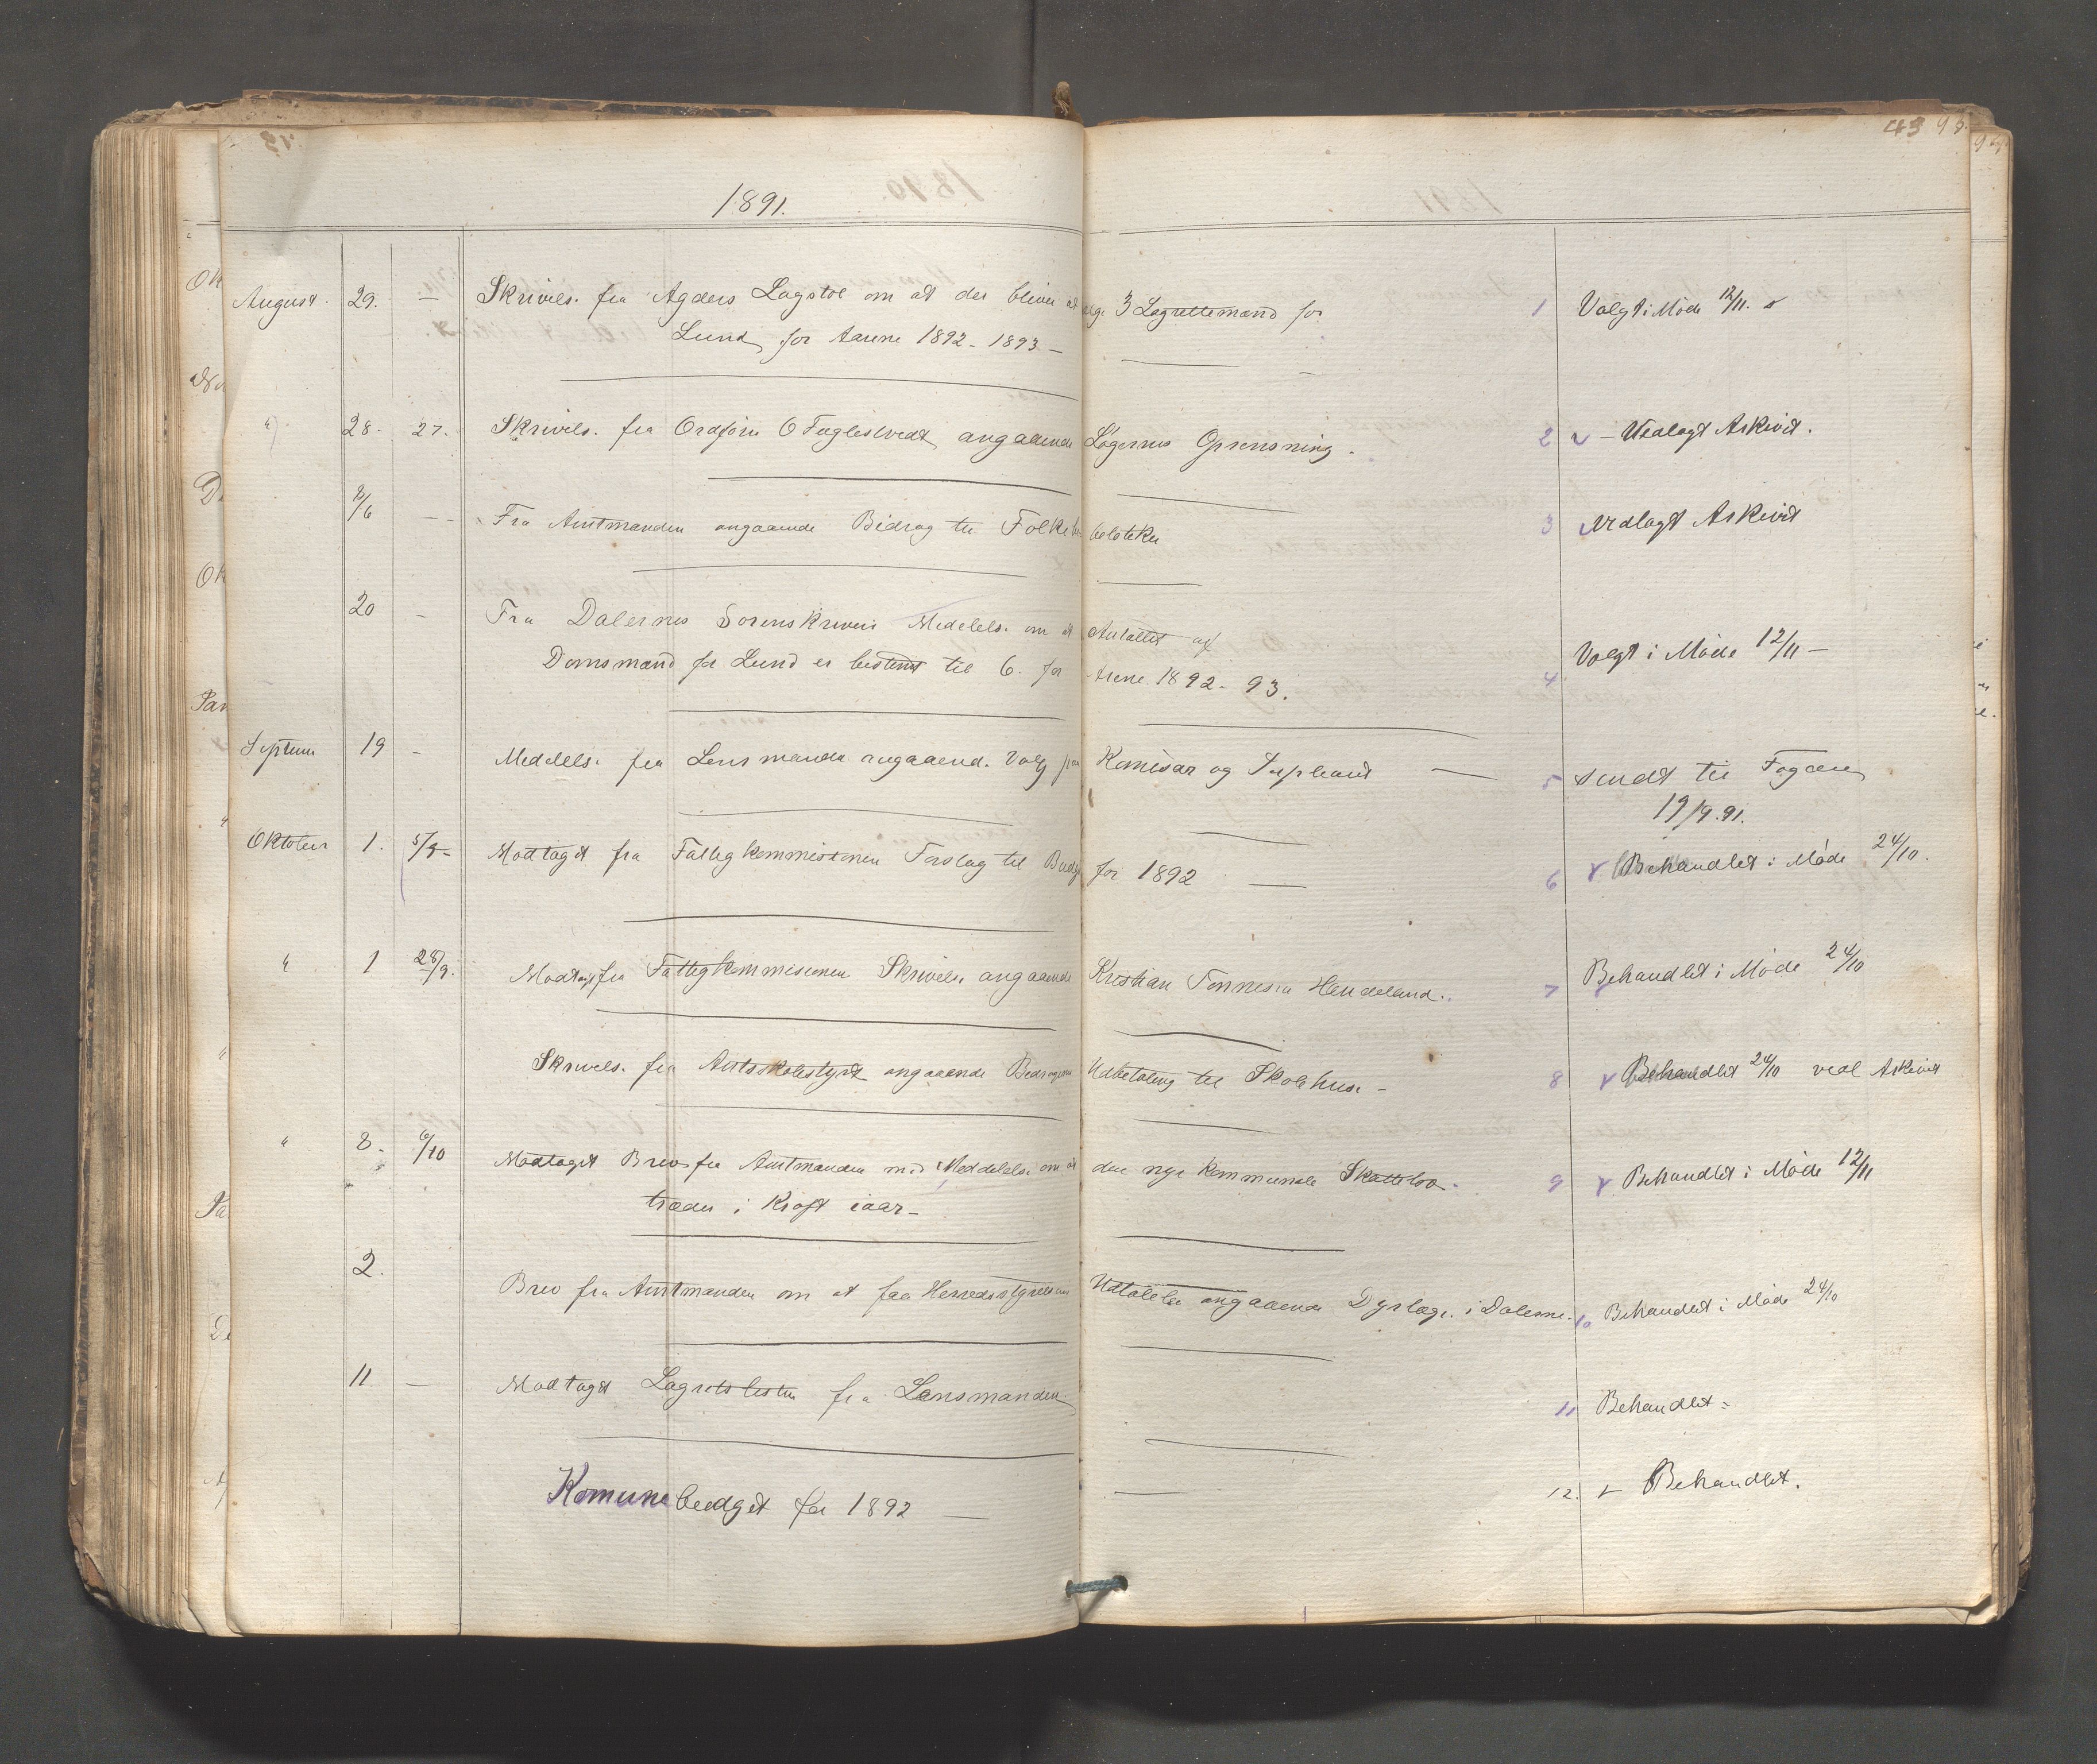 43
1891.
August. 29. — Skrivels. fra Agders Lagstol om at der bliver at vælge 3 Lagrettemænd for 1 Valgt i Møde 12/11.
Lund for Aarene 1892 - 1893 —
" 28. 27. Skrivels. fra Ordfører O Fuglestvedt angaaende Lagernes Oprensning. 2 Vedlagt Arkivet.
/6 — Fra Amtmanden angaaende Bidrag til Folkebibliotheker 3 Vedlagt Arkivet
20 — Fra Dalernes Sorenskriveri Medelels. om at Antallet af
Domsmænd for Lund er bestemt til 6. for Arene 1892 - 93. 4 Valgt i Møde 12/11 —
Septem 19 — Medelels. fra Lensmanden angaaend. Valg paa Komisær og Supleant — 5 sendt til Fogden
19/9.91.
Oktober 1. 5/9 — Modtaget fra Fattigkommissionen Forslag til Budget for 1892 — 6 Behandlet i Møde 24/10.
" 1 28/9. Modtaget fra Fattigkommisionen Skrivels. angaaende Kristian Tønnesen Hendeland. 7 Behandlet i Møde 24/10
Skrivels. fra Amtsskolestyret angaaende Bedragenes Udbetaling til Skolehuse — 8 Behandlet 24/10 vedl Arkivet
" 8. 6/10 Modtaget Brev fra Amtmanden med Meddelelse om at den nye Kommunale Skattelov 9 Behandlet i Møde 12/11
træder i Kraft iaar —
2. Brev fra Amtmanden om at faa Herredsstyrelsens Udtalelse angaaende Dyrlæge i Dalerne. 10 Behandlet i Møde 24/10
11 — Modtaget Lagretslisten fra Lensmanden 11 Behandlet
Komunebudget for 1892 — 12. Behandlet.